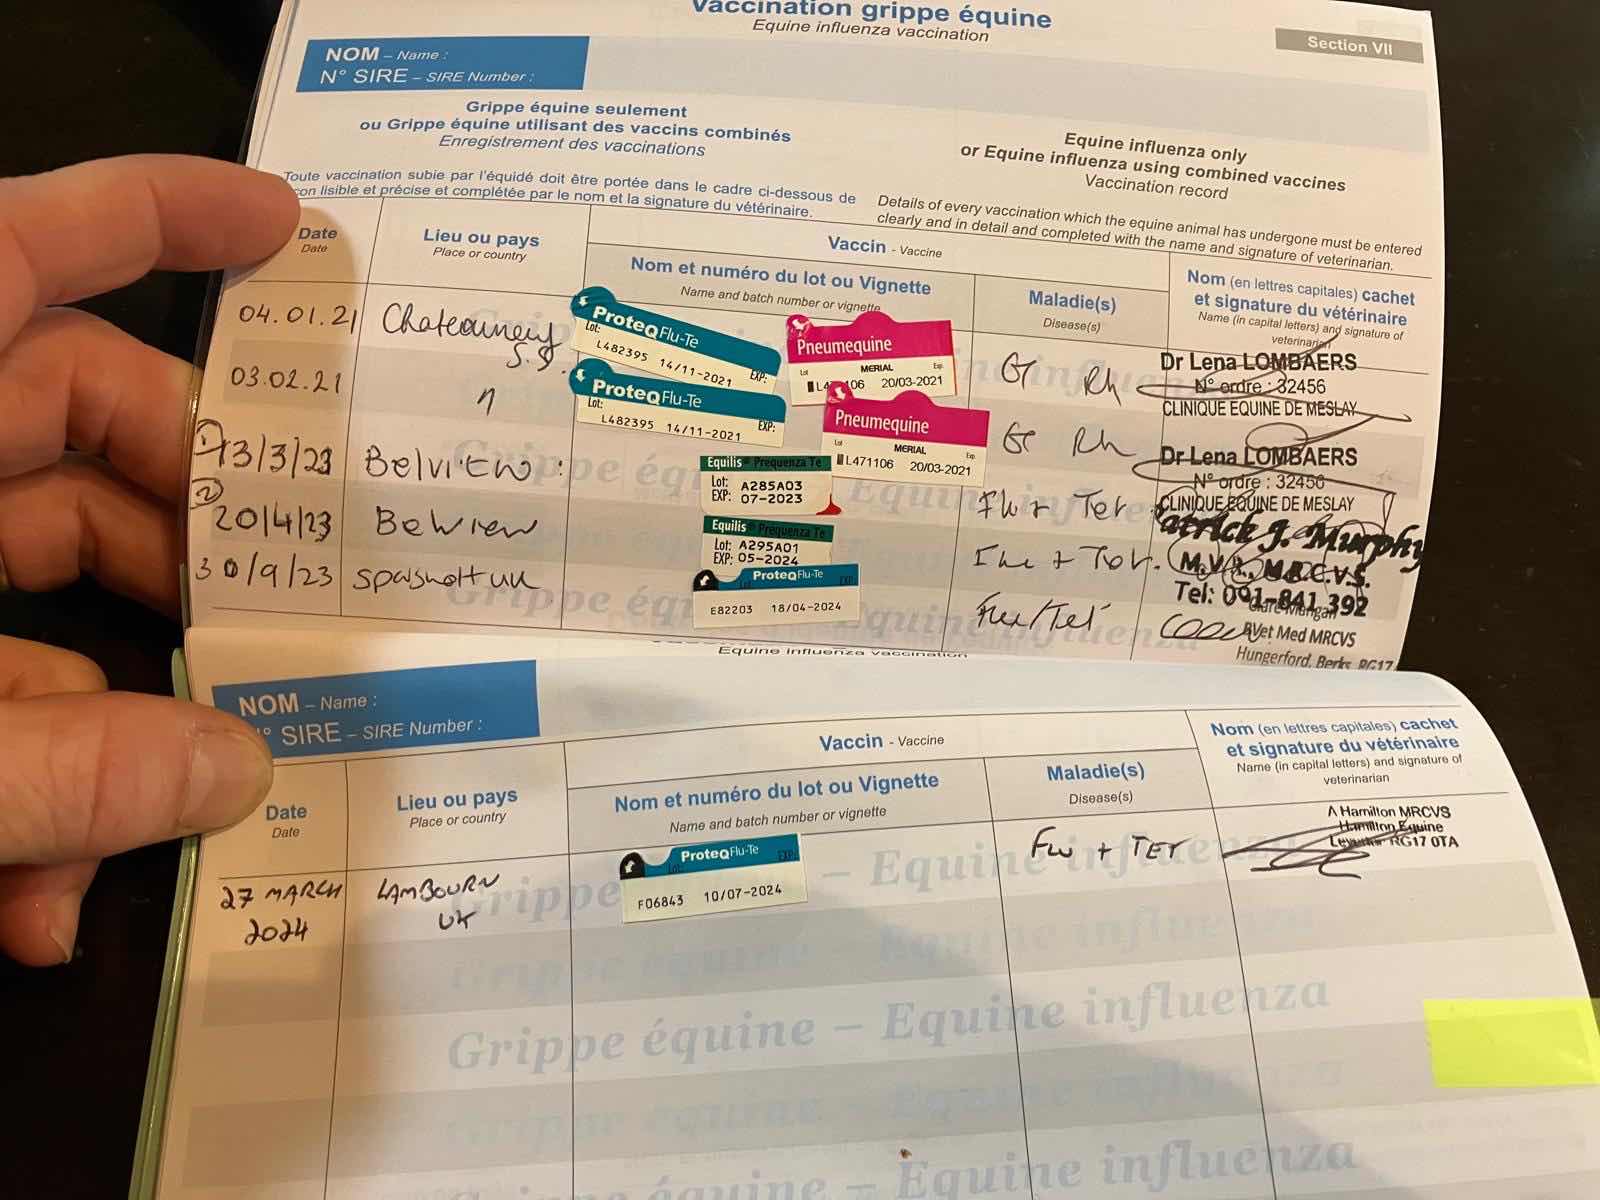 Vaccination grippe équine
Equine influenza vaccination
Section VII
NOM – Name :
N° SIRE – SIRE Number :
Grippe équine seulement
ou Grippe équine utilisant des vaccins combinés
Enregistrement des vaccinations
Equine influenza only
or Equine influenza using combined vaccines
Vaccination record
Toute vaccination subie par l'équidé doit être portée dans le cadre ci-dessous de
lisible et précise et complétée par le nom et la signature du vétérinaire.
Details of every vaccination which the equine animal has undergone must be entered
clearly and in detail and completed with the name and signature of veterinarian.
Date
Date
Lieu ou pays
Place or country
Vaccin - Vaccine
Nom et numéro du lot ou Vignette
Name and batch number or vignette
Maladie(s)
Disease(s)
Nom (en lettres capitales) cachet
et signature du vétérinaire
Name (in capital letters) and signature of
veterinarian
04.01.21
S.S.
ProteqFlu-Te
Lot:
L482395 14/11-2021 EXP:
Pneumequine
Lot MERIAL Exp
20/03-2021
G Rh
Dr Lena LOMBAERS
N° ordre : 32456
CLINIQUE EQUINE DE MESLAY
03.02.21
ProteqFlu-Te
Lot:
L482395 14/11-2021 EXP:
Pneumequine
Lot MERIAL Exp
L471106 20/03-2021
G Rh
Dr Lena LOMBAERS
N° ordre : 32456
CLINIQUE EQUINE DE MESLAY
1 13/3/23
Belview :
Equilis Prequenza Te
Lot: A285A03
EXP: 07-2023
Flu + Tet.
Patrick J. Murphy
M.V.B., M.R.C.V.S.
Tel: 091-841 392
2 20/4/23
Belview
Equilis Prequenza Te
Lot: A295A01
EXP: 05-2024
Flu + Tet.
30/9/23
UK
ProteqFlu-Te
EXP
E82203 18/04-2024
Flu/Tet
Clare Mangan
BVet Med MRCVS
Hungerford, Berks, RG17
Equine influenza vaccination
NOM – Name :
N° SIRE – SIRE Number :
Date
Date
Lieu ou pays
Place or country
Vaccin - Vaccine
Nom et numéro du lot ou Vignette
Name and batch number or vignette
Maladie(s)
Disease(s)
Nom (en lettres capitales) cachet
et signature du vétérinaire
Name (in capital letters) and signature of
veterinarian
27 MARCH
2024
LAMBOURN
UK
ProteqFlu-Te
EXP:
F06843 10/07-2024
FLU + TET
A Hamilton MRCVS
Hamilton Equine
RG17 0TA
Grippe équine – Equine influenza
Grippe équine – Equine influenza
Grippe équine – Equine influenza
Grippe équine – Equine influenza
Grippe équine – Equine influenza